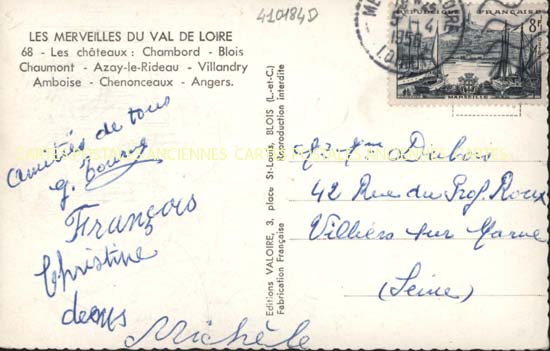 410184D
LES MERVEILLES DU VAL DE LOIRE
68 - Les châteaux : Chambord - Blois
Chaumont - Azay-le-Rideau - Villandry
Amboise - Chenonceaux - Angers.
RÉPUBLIQUE FRANÇAISE
8F
MARSEILLE
LOIRE
1956
Amitiés de tous
g.
François
Christine
Michèle
Editions VALOIRE, 3, place St-Louis, BLOIS (L.-et-C.)
Fabrication Française Reproduction interdite
CARTES POSTALES ANCIENNES CARTES POSTALES ANCIENNES CARTES
Dubois
42 Rue du Prof. Roux
Villiers sur Marne
(Seine)